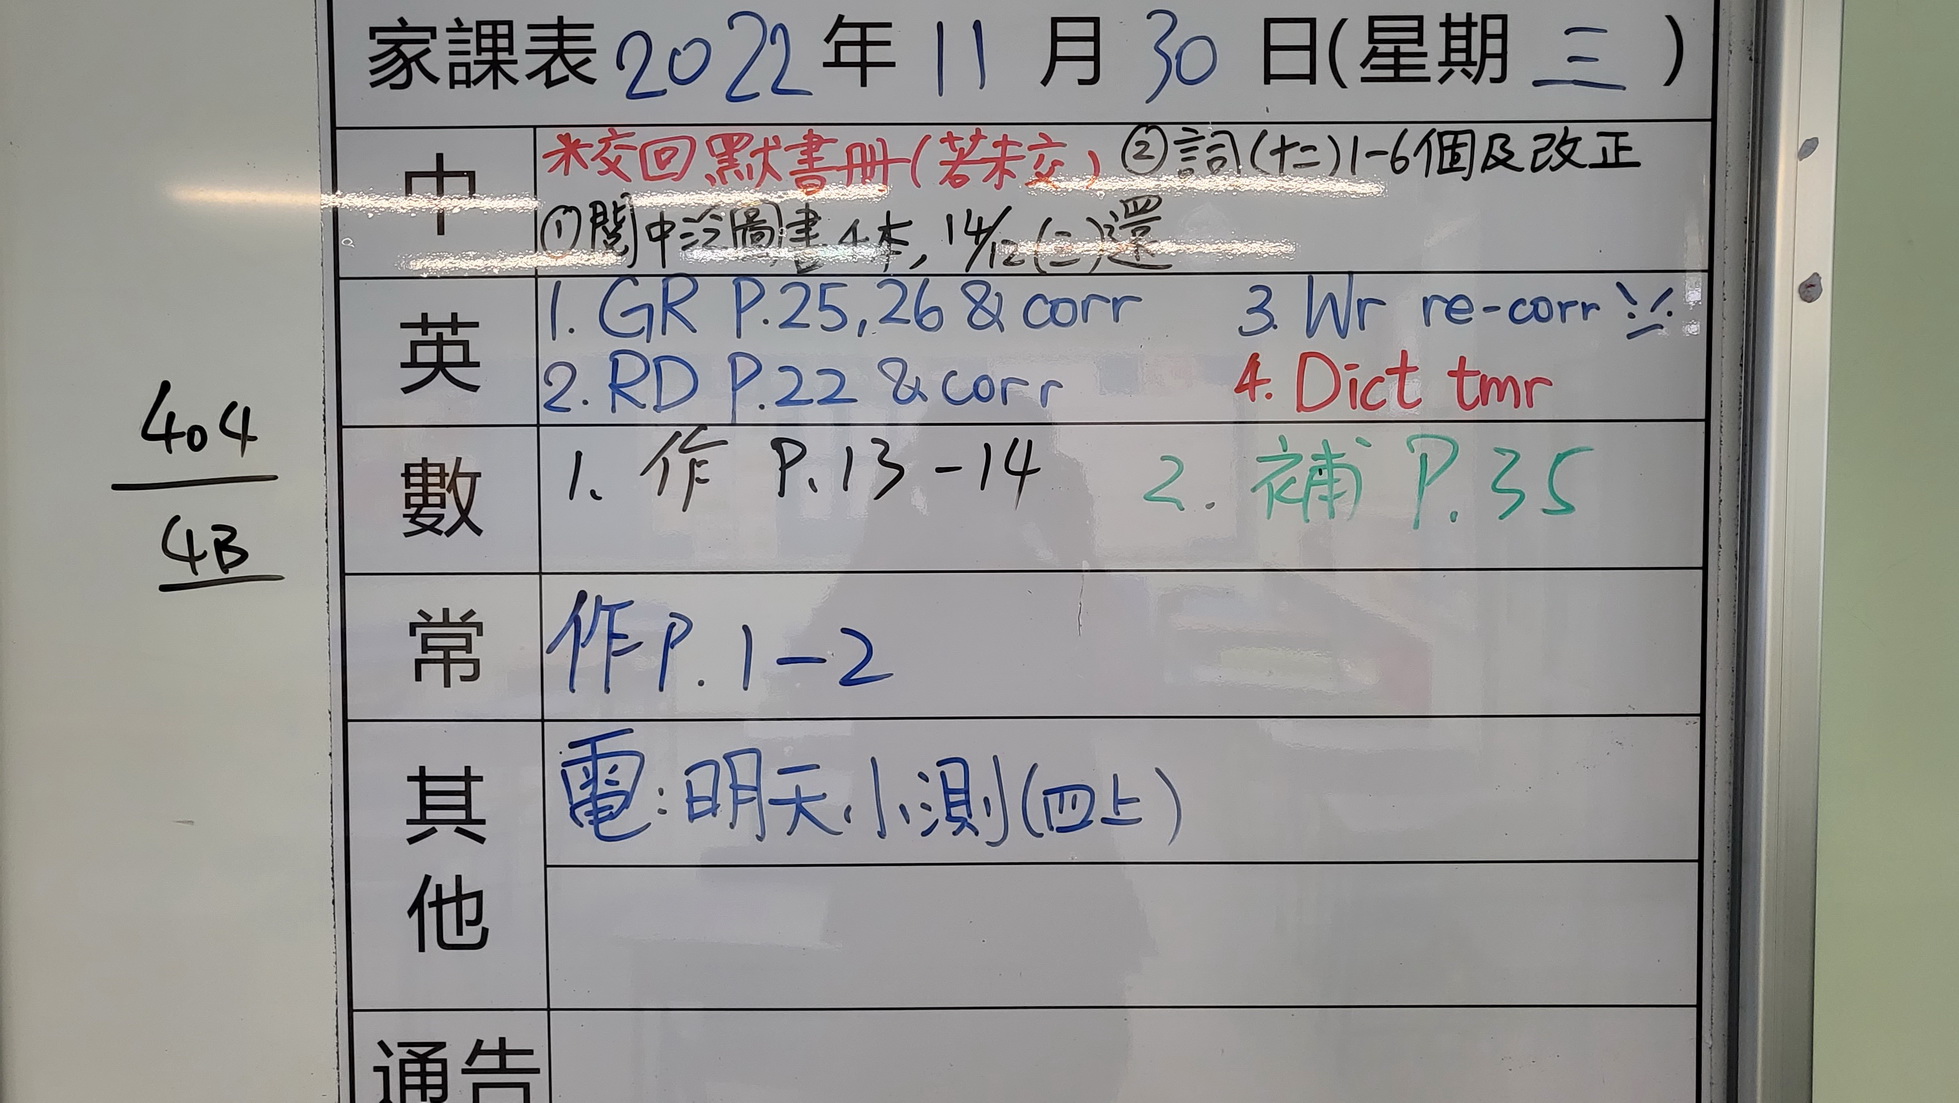 家課表 2022 年 11 月 30 日(星期 三 )
中
*交回默書冊(若未交) ②詞(十二)1-6個及改正
①閱中 圖書4本, 14/12(三)還
英
1. GR P.25, 26 & corr 3. Wr re-corr
2. RD P.22 & corr 4. Dict tmr
數
1. 作 P.13-14 2. 補 P.35
常
作P. 1-2
其他
電:明天小測(四上)
通告
404
4B